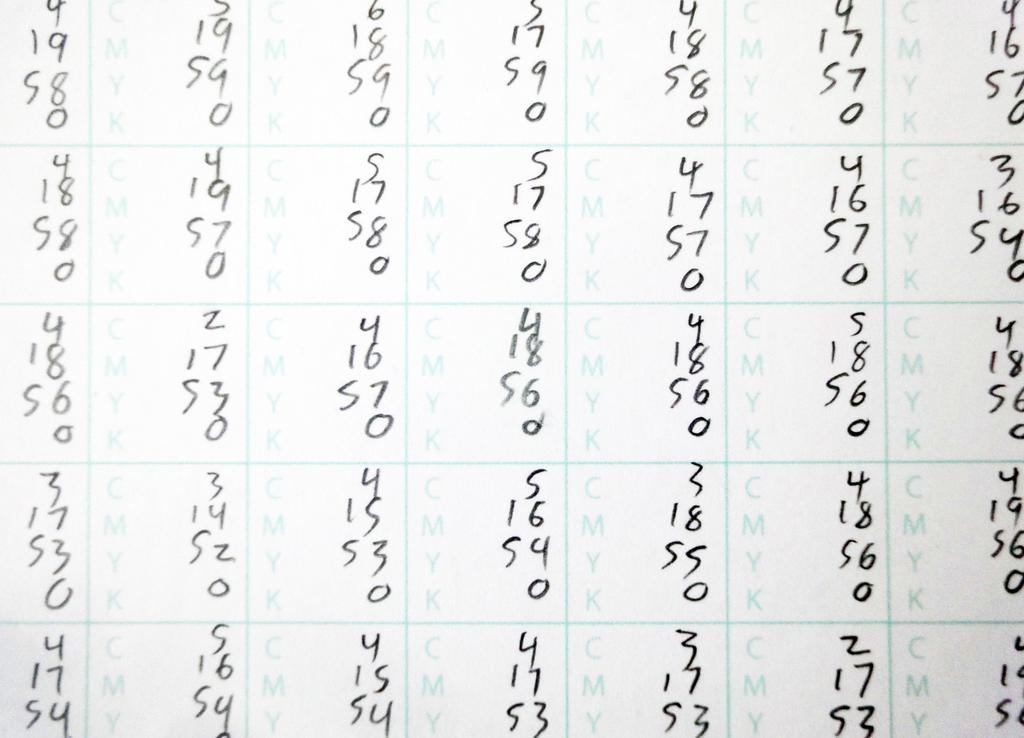 4 C 5 C 6 C 5 C 4 C 4 C 4
19 M 19 M 18 M 17 M 18 M 17 M 16
58 Y 59 Y 59 Y 59 Y 58 Y 57 Y 57
0 K 0 K 0 K 0 K 0 K 0 K 0
4 C 4 C 5 C 5 C 4 C 4 C 3
18 M 19 M 17 M 17 M 17 M 16 M 16
58 Y 57 Y 58 Y 58 Y 57 Y 57 Y 54
0 K 0 K 0 K 0 K 0 K 0 K 0
4 C 2 C 4 C 4 C 4 C 5 C 4
18 M 17 M 16 M 18 M 18 M 18 M 18
56 Y 53 Y 57 Y 56 Y 56 Y 56 Y 56
0 K 0 K 0 K 0 K 0 K 0 K 0
3 C 3 C 4 C 5 C 3 C 4 C 4
17 M 14 M 15 M 16 M 18 M 18 M 19
53 Y 52 Y 53 Y 54 Y 55 Y 56 Y 56
0 K 0 K 0 K 0 K 0 K 0 K 0
4 C 5 C 4 C 4 C 3 C 2 C
17 M 16 M 15 M 17 M 17 M 17 M
54 Y 54 Y 54 Y 53 Y 53 Y 53 Y